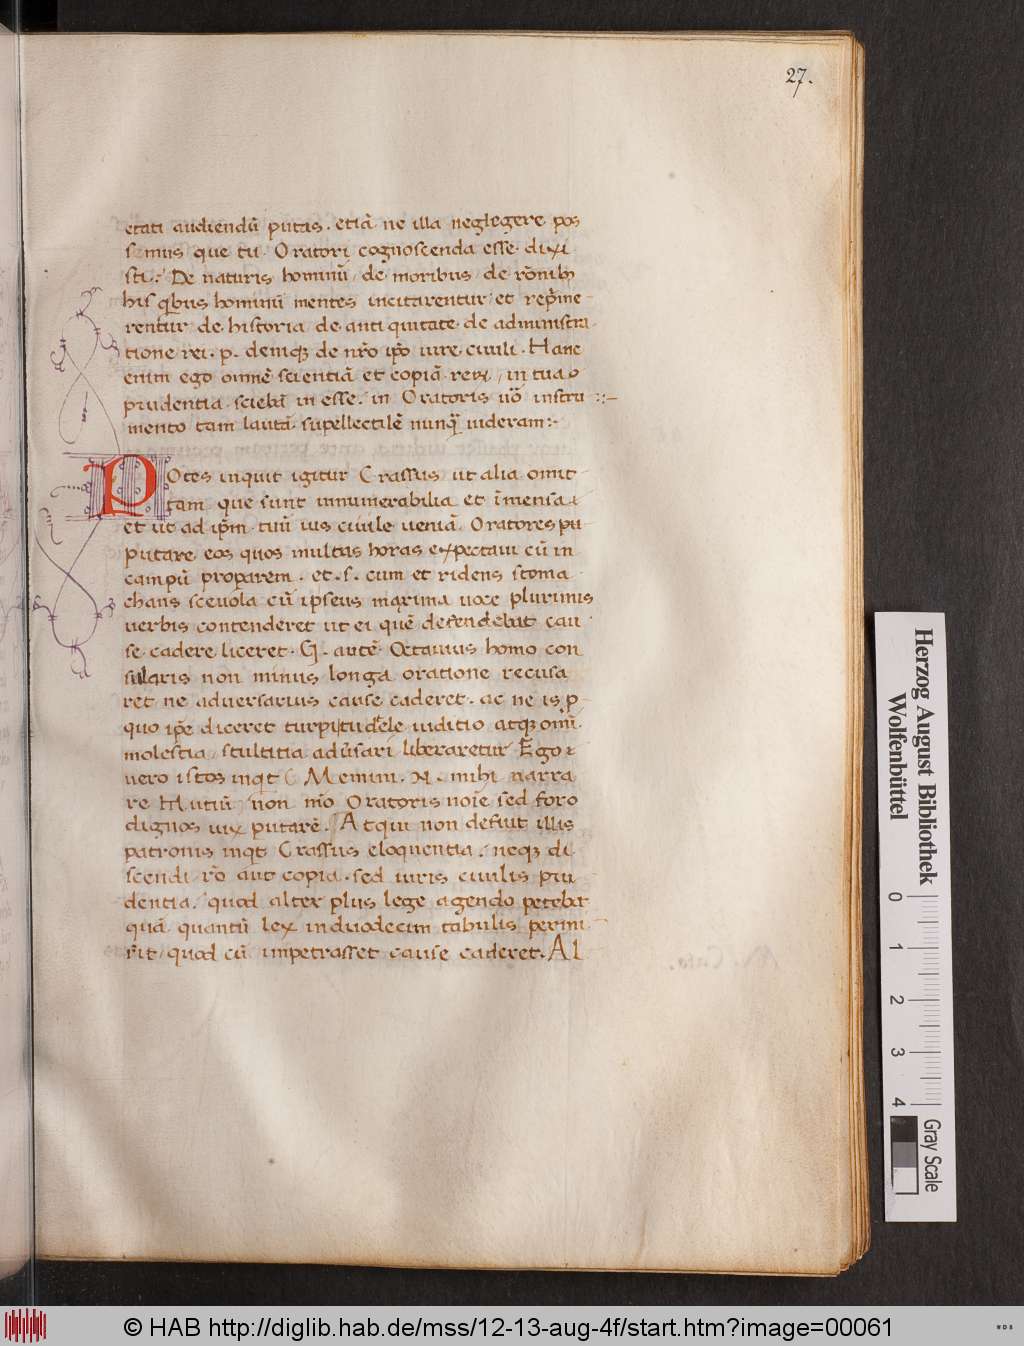 27.
etati audiendū putas. etiā ne illa neglegere pos
semus que tu Oratori cognoscenda esse dixi
sti. De naturis hominū de moribus de rōnibꝫ
his qbus hominū mentes incitarentur et repͥme
rentur de historia de antiquitate de administra
tione rei. p. deniqꝫ de nr̄o ip̄o iure ciuili. Hanc
enim ego omnē scientiā et copiā reꝝ in tua
prudentia sciebā in esse. in Oratoris uo̊ instru
mento tam lautā supellectilē nunqͣ uideram:
Potes inquit igitur Crassus ut alia omit
tam que sunt innumerabilia et īmensa
et ut ad ip̄m tuū ius ciuile ueniā. Oratores pu
putare eos quos multas horas expectaui cū in
campū properarem. et. s. cum et ridens stoma
chans sceuola cū ipseus maxima uoce plurimis
uerbis contenderet ut ei quē defendebat cau
se cadere liceret. G. autē Octauius homo con
sularis non minus longa oratione recusa
ret ne aduersarius cause caderet. ac ne is p
quo ip̄e diceret turpi tudele iuditio atqꝫ om̄i
molestia stultitia adu̇sari liberaretur Ego
uero istos inqt C Memini. N. mihi narra
re Mutiū non mō Oratoris noīe sed foro
dignos uix putarē. Atqui non defuit illis
patronis inqt Crassus eloquentia. neqꝫ di
scendi rō aut copia. sed iuris ciuilis pru
dentia. quod alter plus lege agendo petebat
quā quantū lex in duodecim tabulis permi
s̄it quod cū impetrasset cause caderet. Al
Herzog August Bibliothek
Wolfenbüttel
0 1 2 3 4
Gray Scale
© HAB http://diglib.hab.de/mss/12-13-aug-4f/start.htm?image=00061
WDB